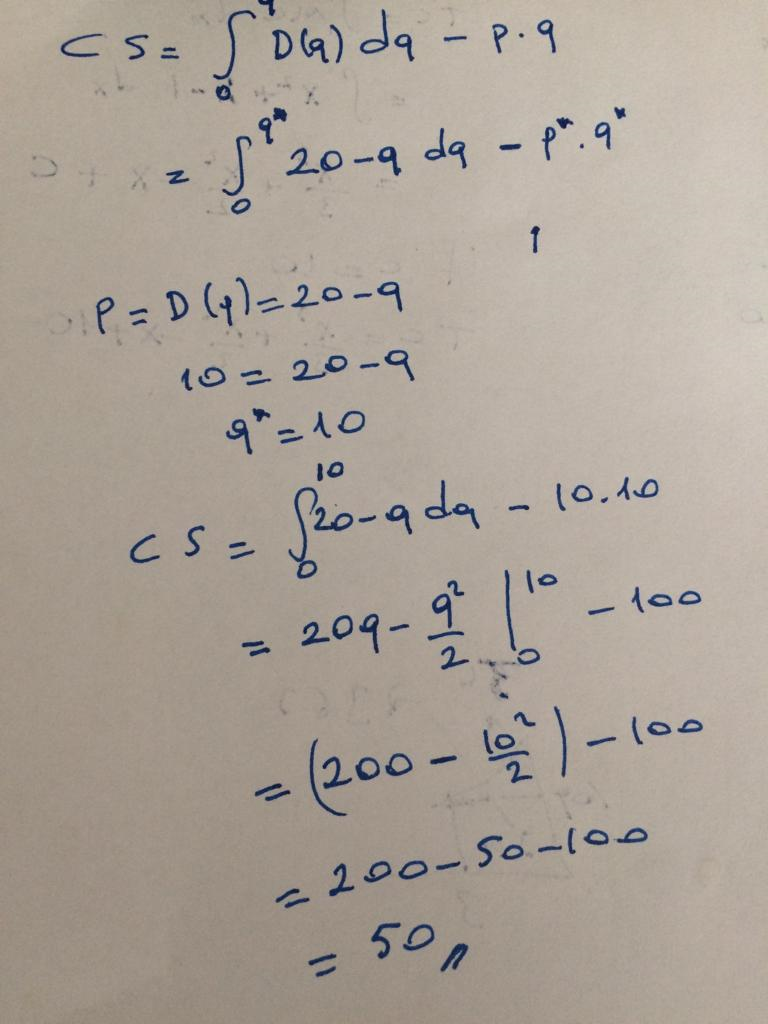 CS = ∫₀^q D(q) dq - p.q
= ∫₀^q* 20-q dq - p*.q*
1
P = D(q) = 20-q
10 = 20-q
q* = 10
CS = ∫₀^10 20-q dq - 10.10
= 20q - q²/2 |₀^10 - 100
= (200 - 10²/2) - 100
= 200-50-100
= 50